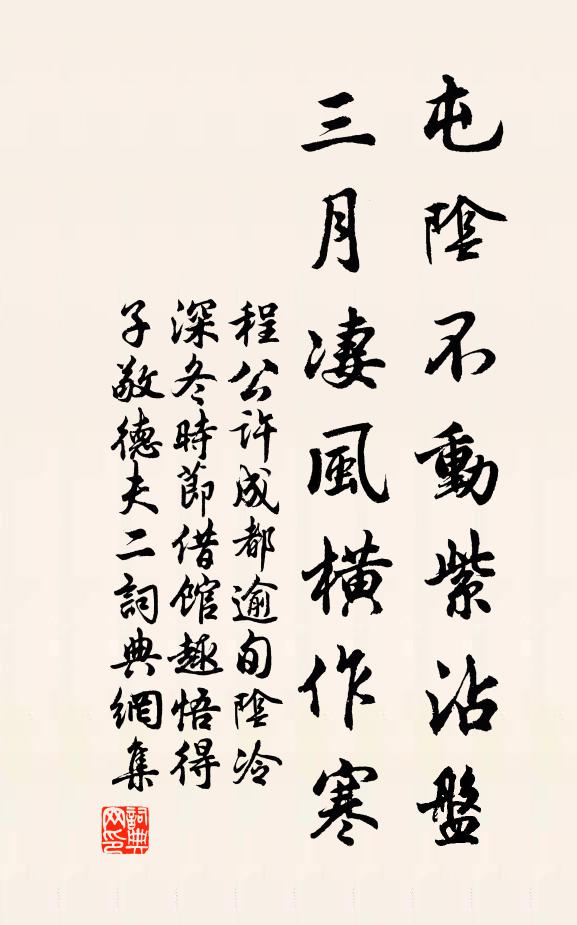 屯陰不動紫沾盤
三月凄風橫作寒
程公許成都逾旬陰冷
深冬時節借館趣悟得
子敬德夫二詞典網集
詞典網印